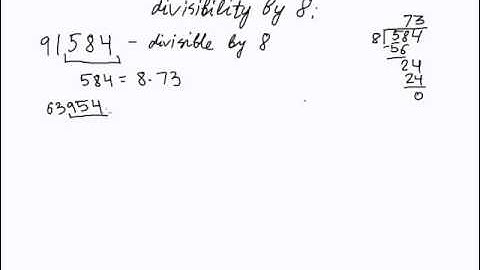 divisibility by 8:
91,584 - divisible by 8
584 = 8.73
63954
73
8 584
-56
24
24
0